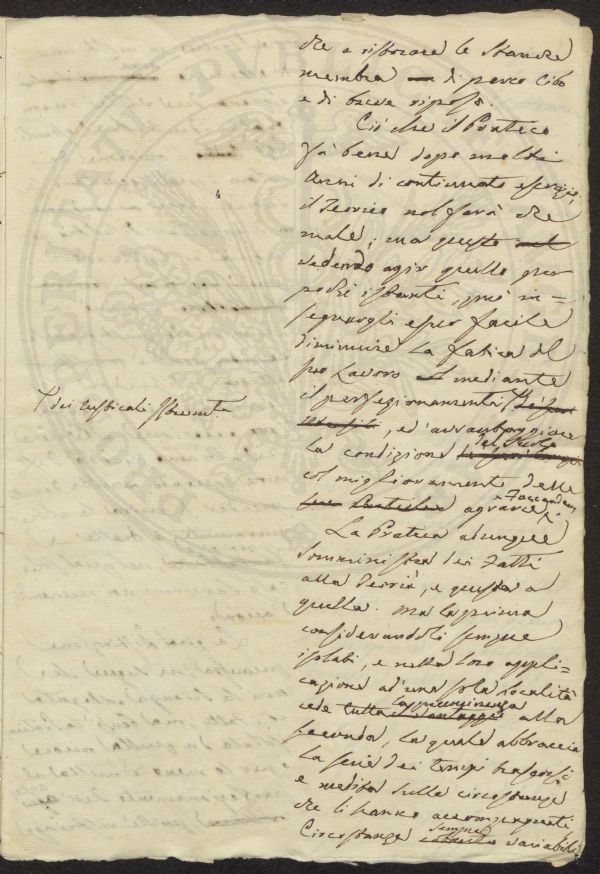 che a ristorare le stanche
membra di parco Cibo
e di breve riposo.
Ciò che il Pratico
fà bene dopo molti
Anni di continuato esercizio,
il Teorico nol farà che
male; ma questo
vedendo agir quello per
pochi istanti, può in=
segnargli a per facile
diminuire la fatica del
suo Lavoro mediante
il perfezionamento
T dei rusticali strumenti
, ed avvantaggiare
la condizione del Suolo
col miglioramento delle
agrarie Faccende.
La Pratica adunque
somministra dei Fatti
alla Teoria, e questa a
quella. Ma la prima
considerandoli sempre
isolati, e nella loro appli=
cazione ad una sola Località
cede la preminenza alla
seconda, la quale abbraccia
la serie dei tempi trascorsi
e medita sulle circostanze
che li hanno accompagnati
Circostanze sempre variabili